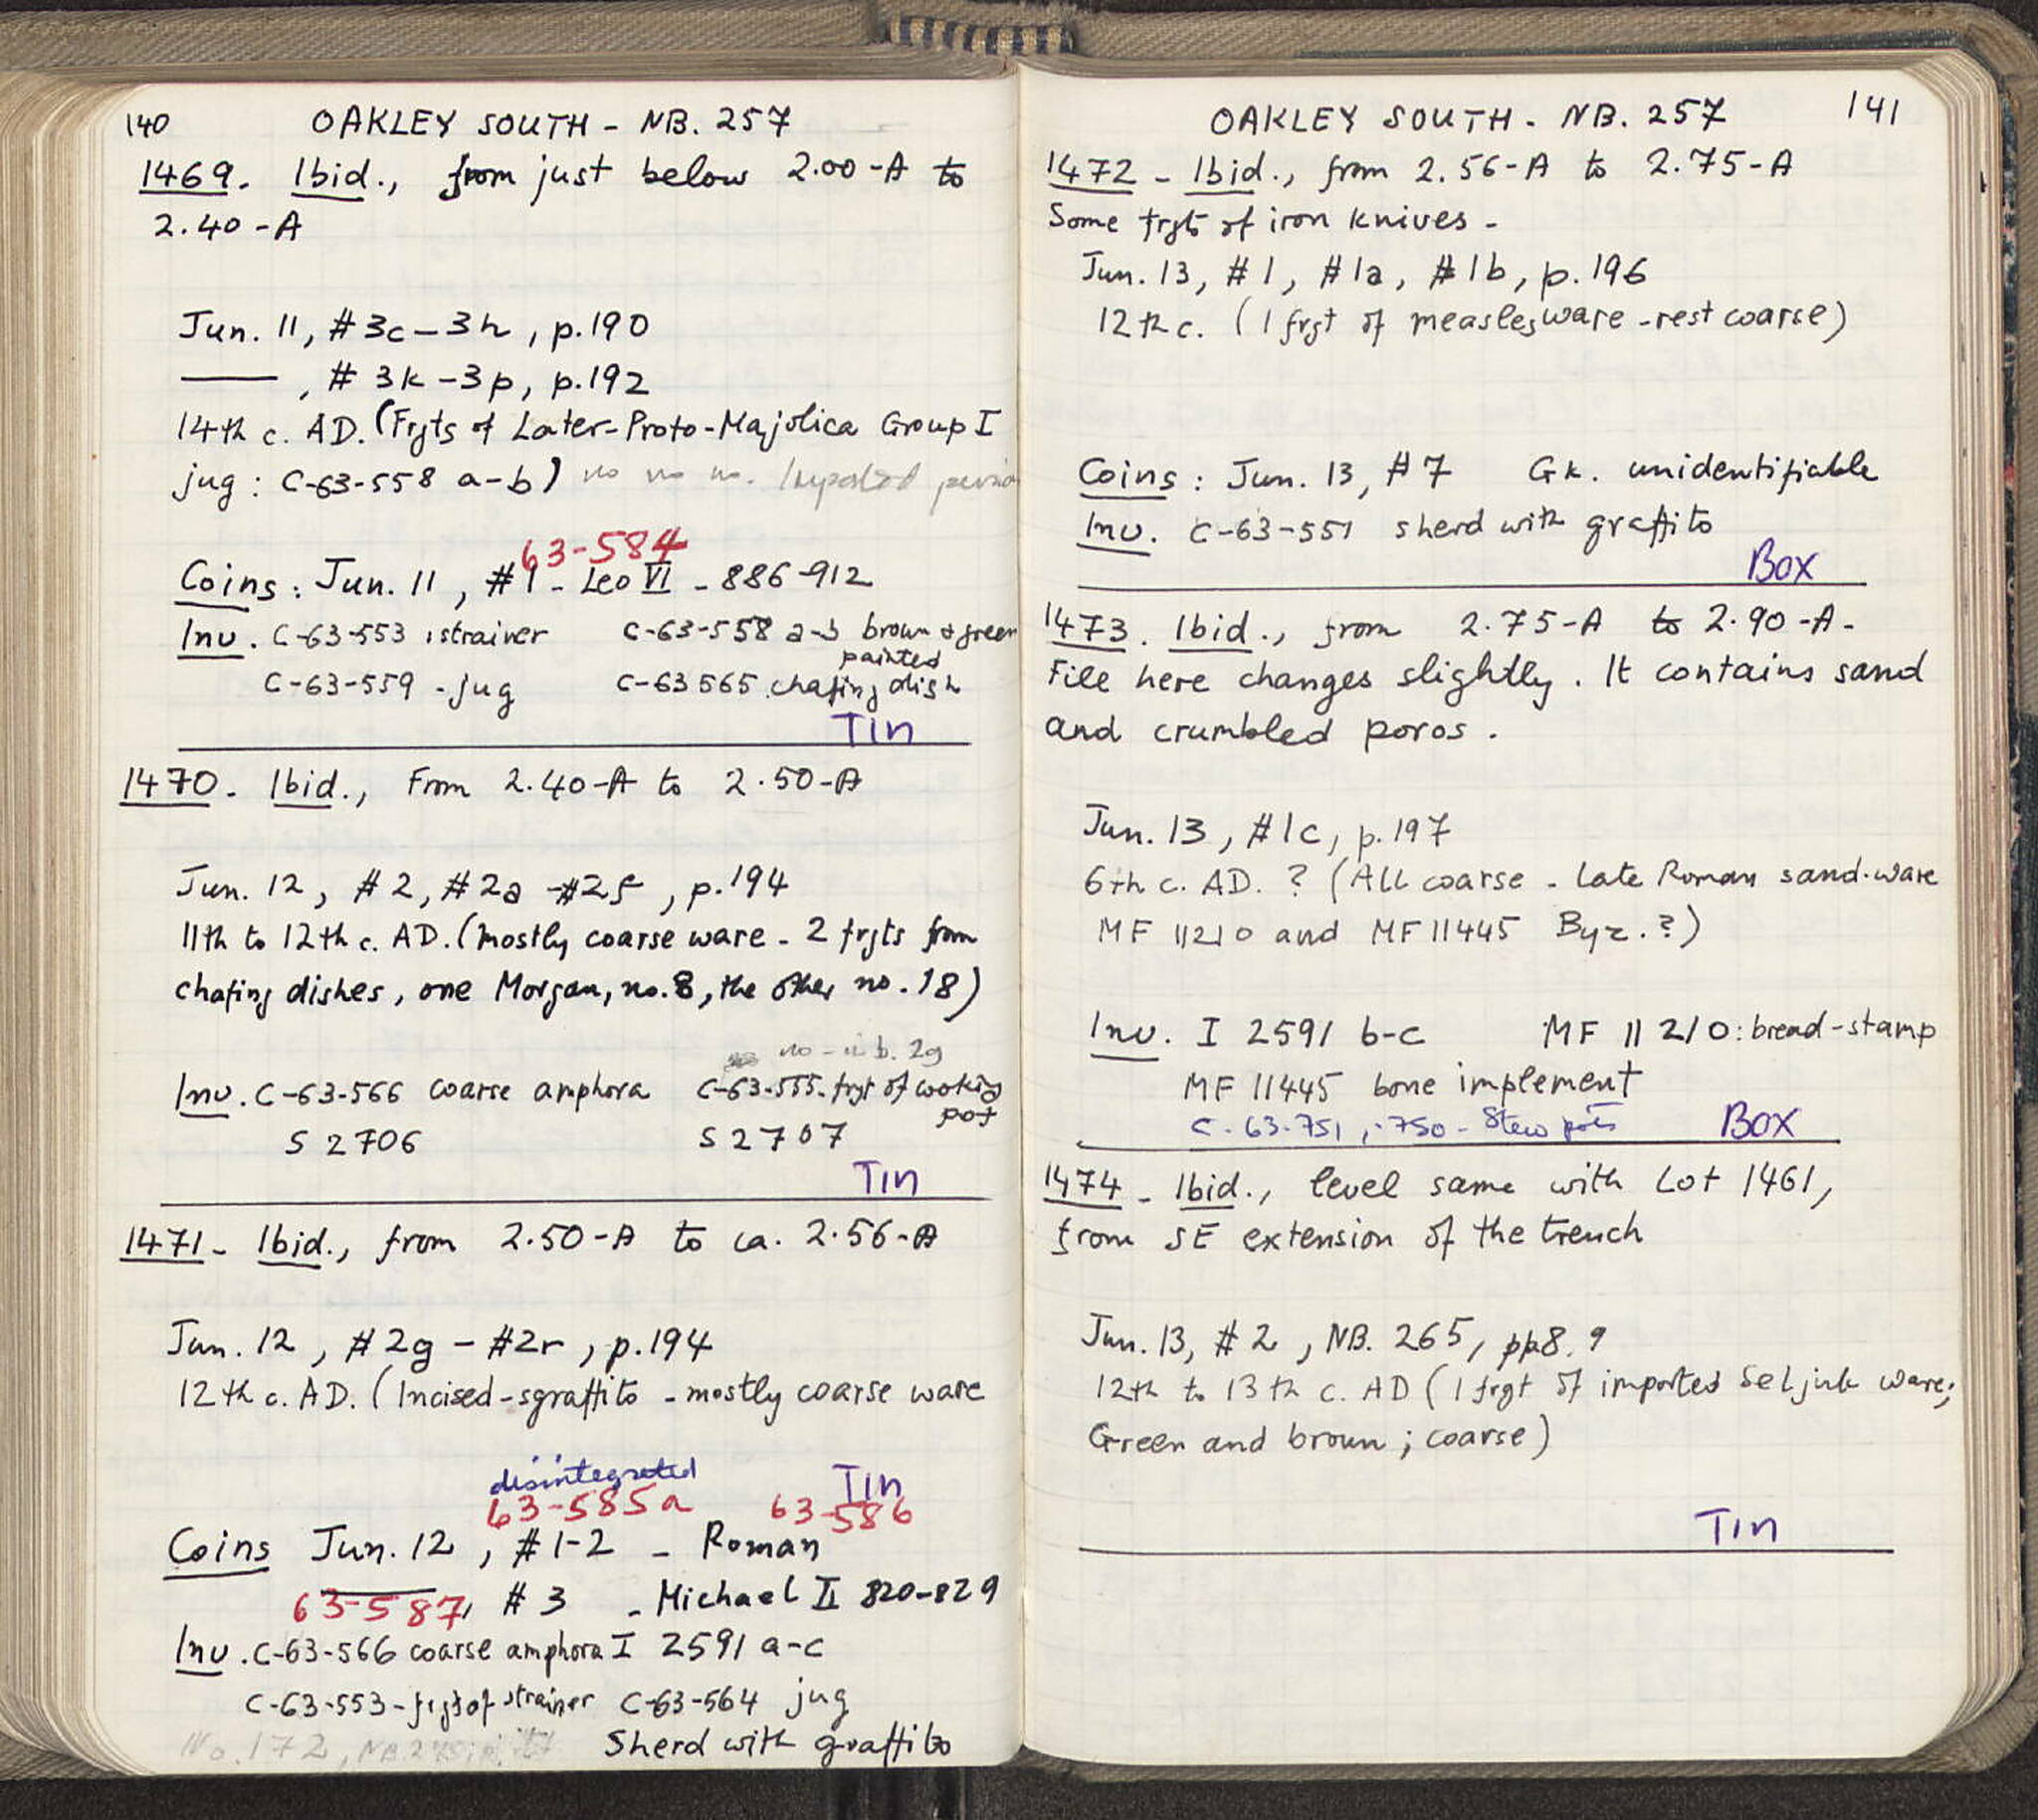 140 OAKLEY SOUTH - NB. 257
1469. Ibid., from just below 2.00-A to
2.40-A
Jun. 11, #3c-3h, p.190
—— , # 3k-3p, p.192
14th c. AD. (Frgts of Later-Proto-Majolica Group I
jug : C-63-558 a-b) no no no. Imported
63-584
Coins : Jun. 11, #1 - Leo VI - 886-912
Inv. C-63-553 : strainer C-63-558 a-b brown & green
painted
C-63-559 - jug C-63 565. chafing dish
Tin
1470. Ibid., From 2.40-A to 2.50-A
Jun. 12, #2, #2a-#2f, p.194
11th to 12th c. AD. (mostly coarse ware - 2 frgts from
chafing dishes, one Morgan, no. 8, the other no. 18)
no - in b. 2g
Inv. C-63-566 coarse amphora C-63-555. frgt of cooking
pot
S 2706 S 2707
Tin
1471- Ibid., from 2.50-A to ca. 2.56-A
Jun. 12, #2g - #2r, p.194
12th c. AD. (Incised-sgraffito - mostly coarse ware
disintegrated Tin
63-585a 63-586
Coins Jun. 12, #1-2 - Roman
63-587, #3 - Michael II 820-829
Inv. C-63-566 coarse amphora I 2591 a-c
C-63-553-frgt of strainer C-63-564 jug
No. 172, Sherd with graffito
OAKLEY SOUTH - NB. 257 141
1472 - Ibid., from 2.56-A to 2.75-A
Some frgts of iron knives -
Jun. 13, #1, #1a, #1b, p.196
12th c. (1 frgt of measles ware - rest coarse)
Coins : Jun. 13, #7 Gk. unidentifiable
Inv. C-63-551 sherd with graffito
Box
1473. Ibid., from 2.75-A to 2.90-A-
Fill here changes slightly. It contains sand
and crumbled poros.
Jun. 13, #1c, p.197
6th c. AD. ? (All coarse - late Roman sand-ware
MF 11210 and MF 11445 Byz. ?)
Inv. I 2591 b-c MF 11210: bread-stamp
MF 11445 bone implement
C-63-751, -750 - Stew pots Box
1474 - Ibid., level same with Lot 1461,
from SE extension of the trench
Jun. 13, #2, NB. 265, pp8. 9
12th to 13th c. AD (1 frgt of imported Seljuk ware;
Green and brown; coarse)
Tin